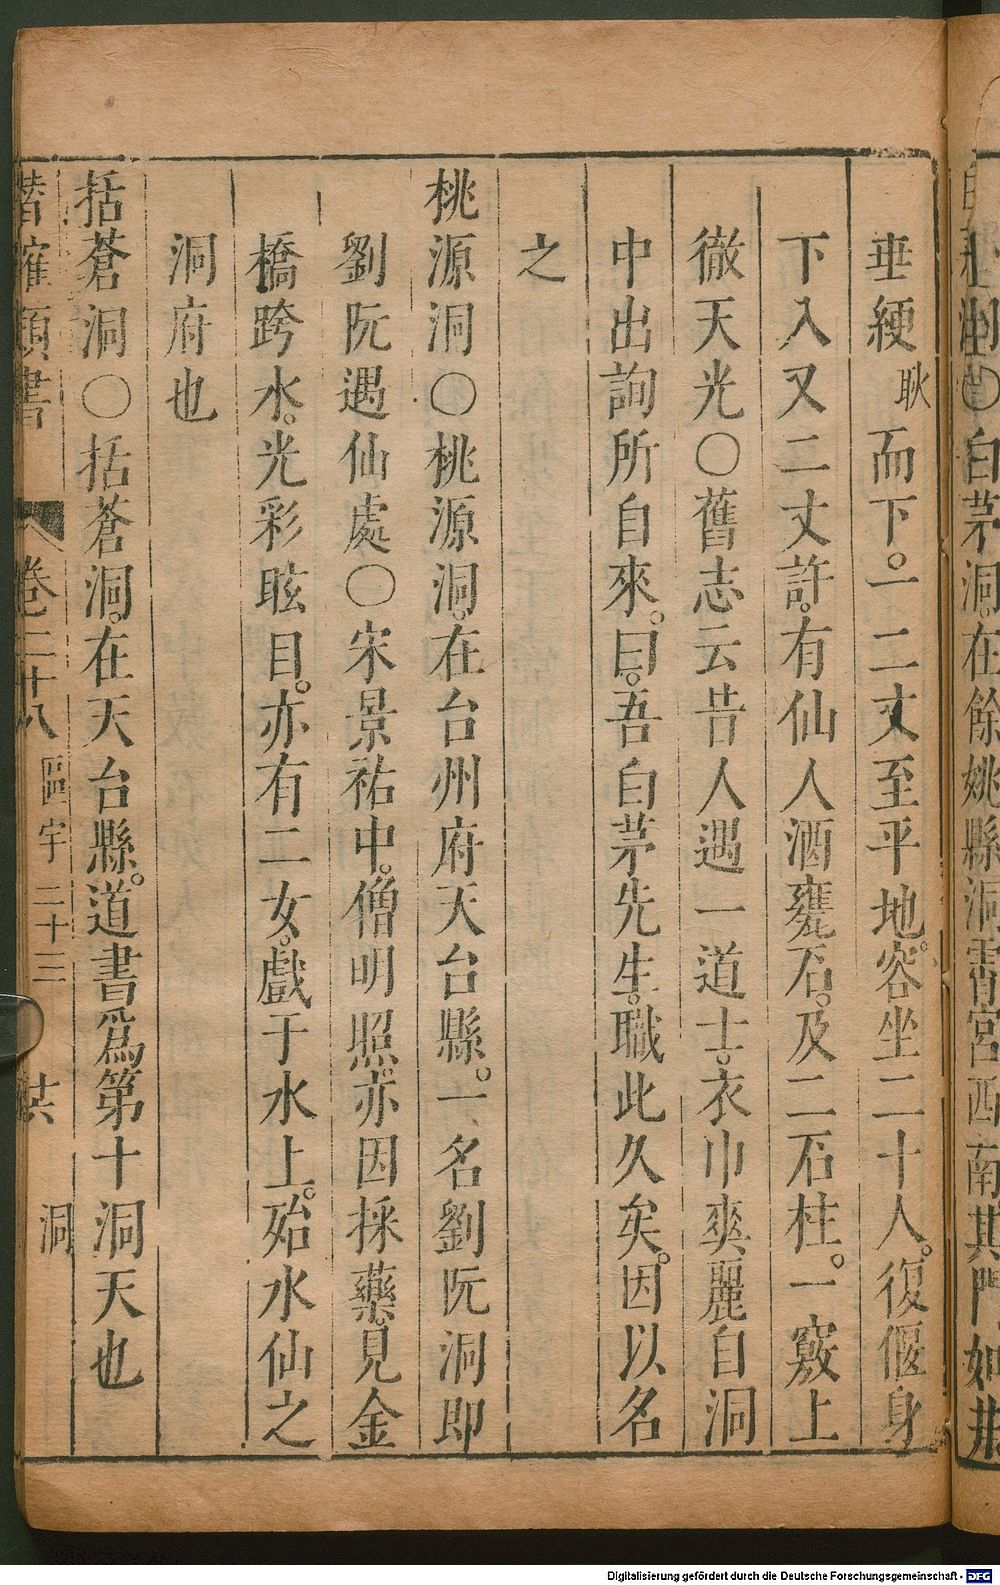 自茅洞〇自茅洞。在餘姚縣洞霄宮西南其門如井
垂綆耿而下。一二丈至平地。容坐二十人。復偃身
下入又二丈許。有仙人酒甕石。及二石柱。一竅上
徹天光〇舊志云昔人遇一道士。衣巾爽麗自洞
中出詢所自來。曰。吾自茅先生。職此久矣。因以名
之
桃源洞〇桃源洞。在台州府天台縣。一名劉阮洞即
劉阮遇仙處〇宋景祐中。僧明照。亦因採藥。見金
橋跨水。光彩眩目。亦有二女。戲于水上。殆水仙之
洞府也
括蒼洞〇括蒼洞。在天台縣。道書為第十洞天也
潛確類書 卷二十八 區宇二十三 共 洞
Digitalisierung gefördert durch die Deutsche Forschungsgemeinschaft - DFG